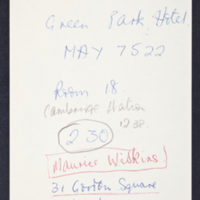 Green Park Hotel
MAY 7522
Room 18.
Cambridge Station
12.38.
2 30
Maurice Wilkins
31 Gordon Square